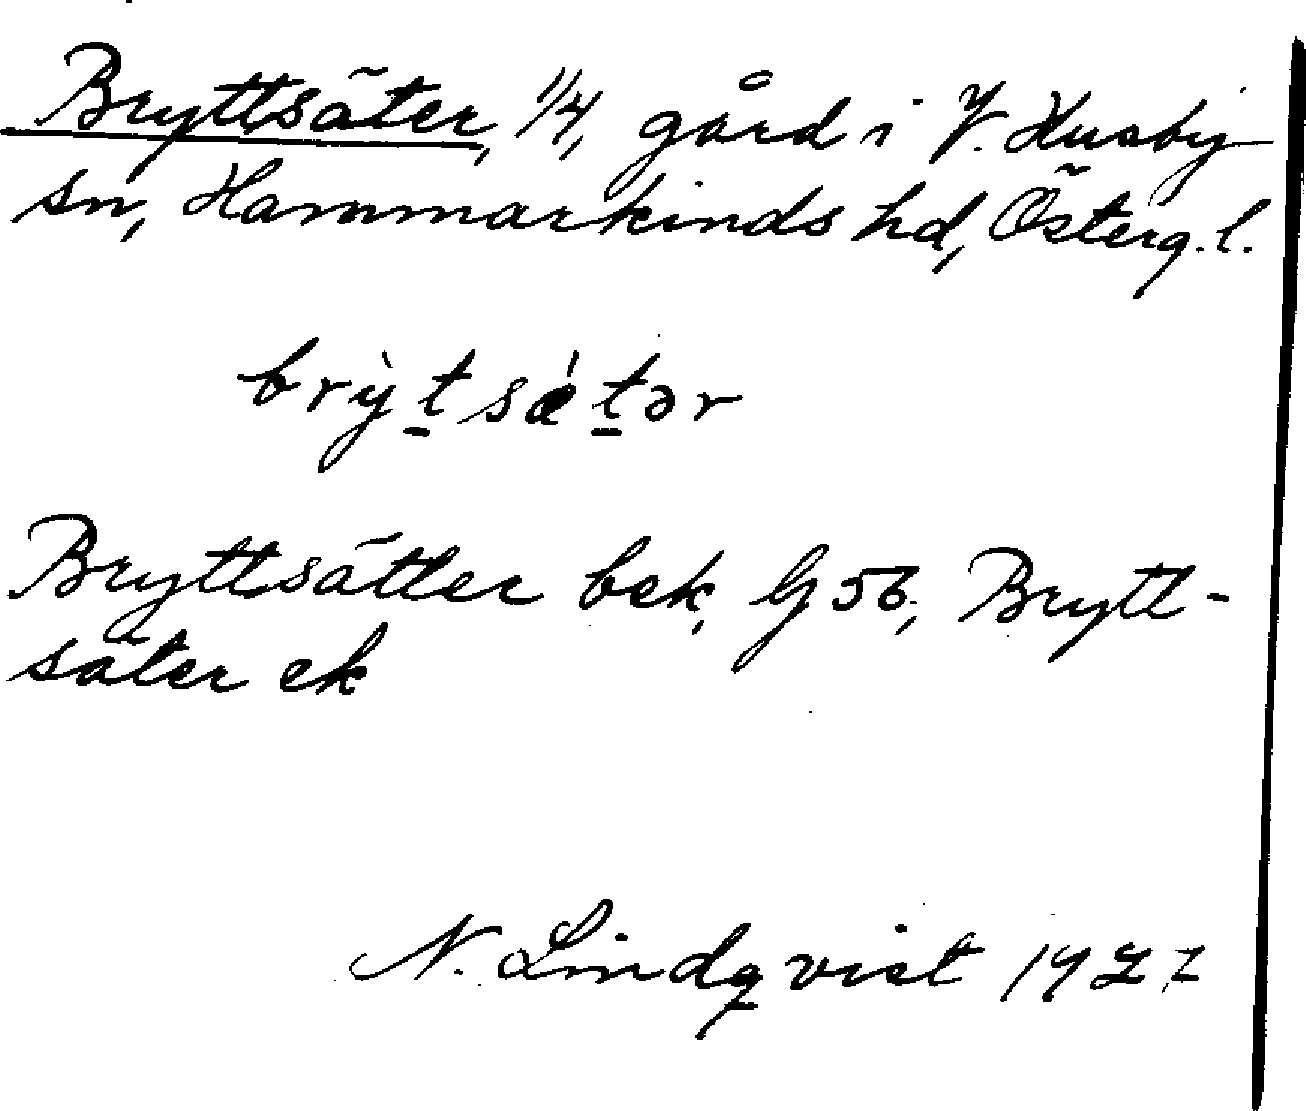 Bryttsäter, 1/4, gård i V. Husby
sn, Hammarkinds hd, Österg. l.
brỳtsǽtər
Bryttsätter bek, G 56, Brytt-
säter ek
N. Lindqvist 1922